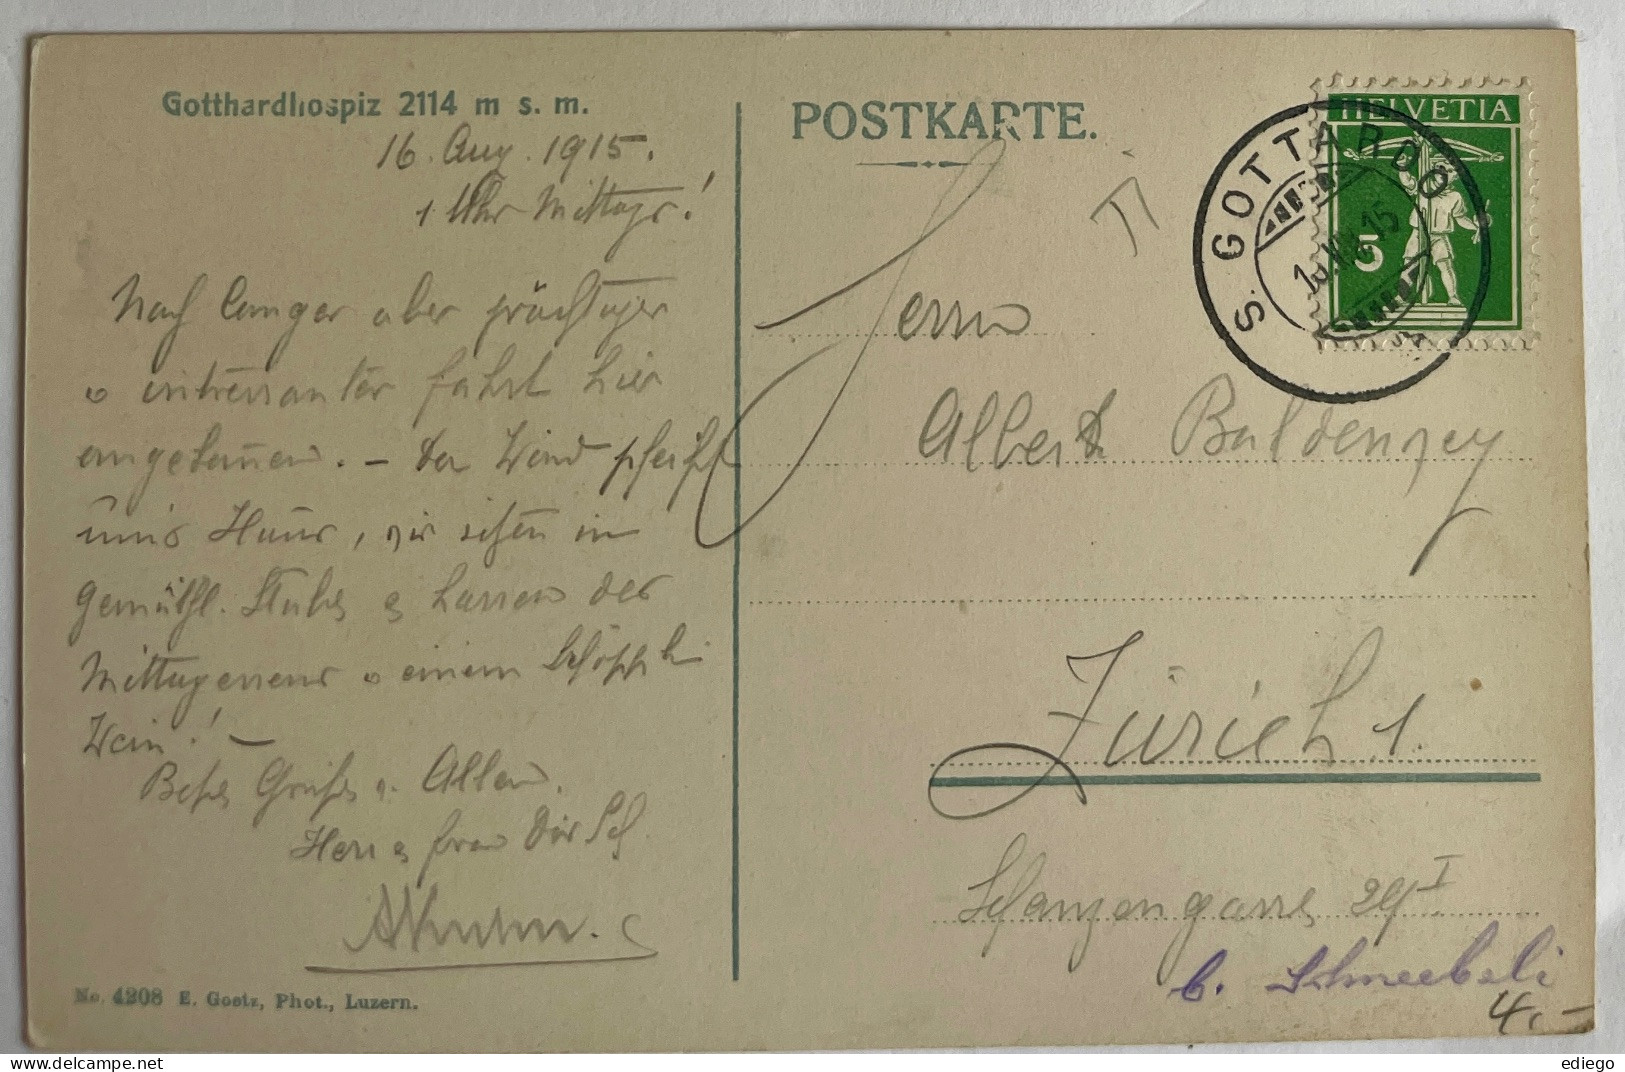 Gotthardhospiz 2114 m s. m.
16. Aug. 1915.
1 Uhr Mittags!
Nach langer aber prächtiger
u interessanter Fahrt hier
angekommen. – Der Wind pfeift
ums Haus, wir sitzen im
gemütlichen Stube & harren des
Mittagessens u einem Schöppli
Wein! –
Beste Grüsse v. Allen.
Herr & Frau Dir Sch
No. 4208 E. Goetz, Phot., Luzern.
POSTKARTE.
HELVETIA
5
S. GOTTARDO
16.VIII.15
Herrn
Albert Baldenzey
Zürich 1.
Schanzengasse 29 I
b. Schneebeli
4.-
ediego